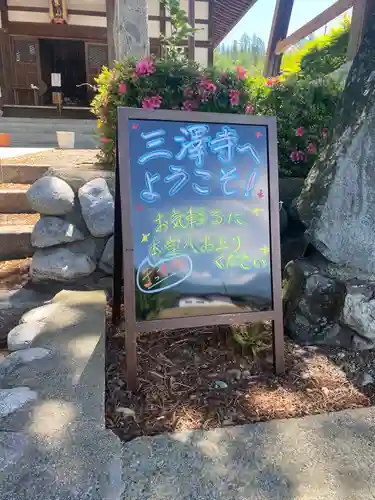 三澤寺へ
ようこそ!
お気軽に
お堂へお上り
ください